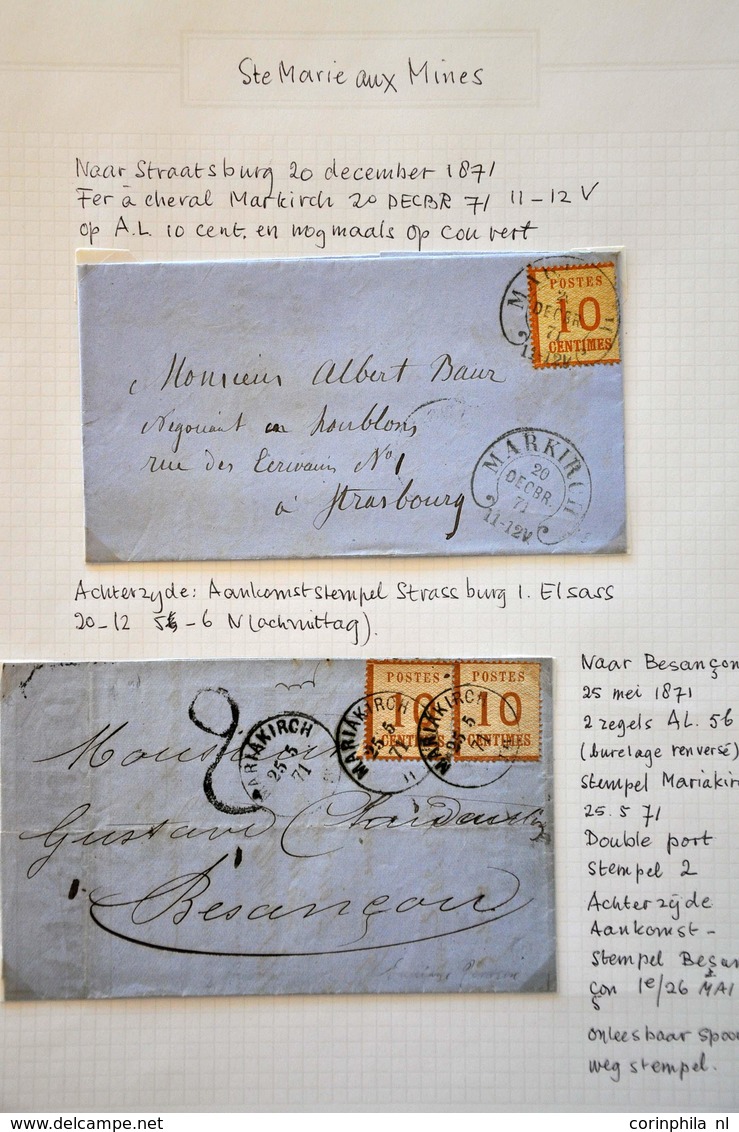 Ste Marie aux Mines
Naar Straatsburg 20 december 1871
Fer à cheval Markirch 20 DECBR 71 11-12 V
op A.L. 10 cent. en nogmaals op couvert
MAR
2
DECBR
71
11-12V.
POSTES
10
CENTIMES
Monsieur Albert Baur
Négociant en houblons
rue des Ecrivains No 1
à Strasbourg
MARKIRCH
20
DECBR.
71
11-12V.
Achterzyde: Aankomststempel Strassburg I. Elsass
20-12 5-6 N(achmittag).
POSTES
10
CENTIMES
POSTES
10
CENTIMES
2
MARIAKIRCH
25 5
71
MARIAKIRCH
25 5
71
MARIAKIRCH
25 5
Monsieur
Gustave
Besançon
Naar Besançon
25 mei 1871
2 zegels AL. 5b
(burelage renversé)
stempel Mariakir
25.5 71
Double port
stempel 2
Achterzyde
Aankomst-
stempel Besan
çon 1e/26 MAI
5
onleesbaar spoor
weg stempel.
corinphila nl